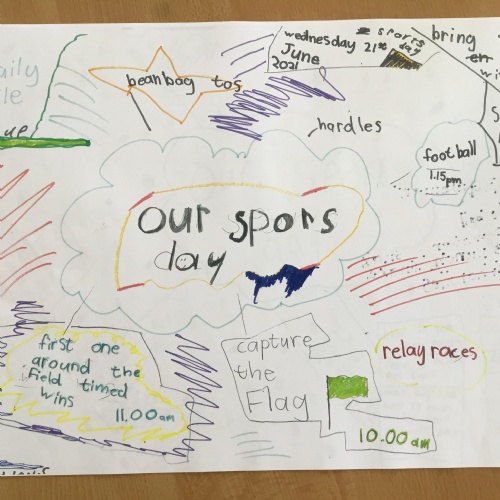 aily
le
up
bean bag tos
wednesday 21st
June
2021
sports
day
bring
hardles
football
1.15pm
our spors
day
first one
around the
field timed
wins
11.00am
capture
the
Flag
10.00am
relay races